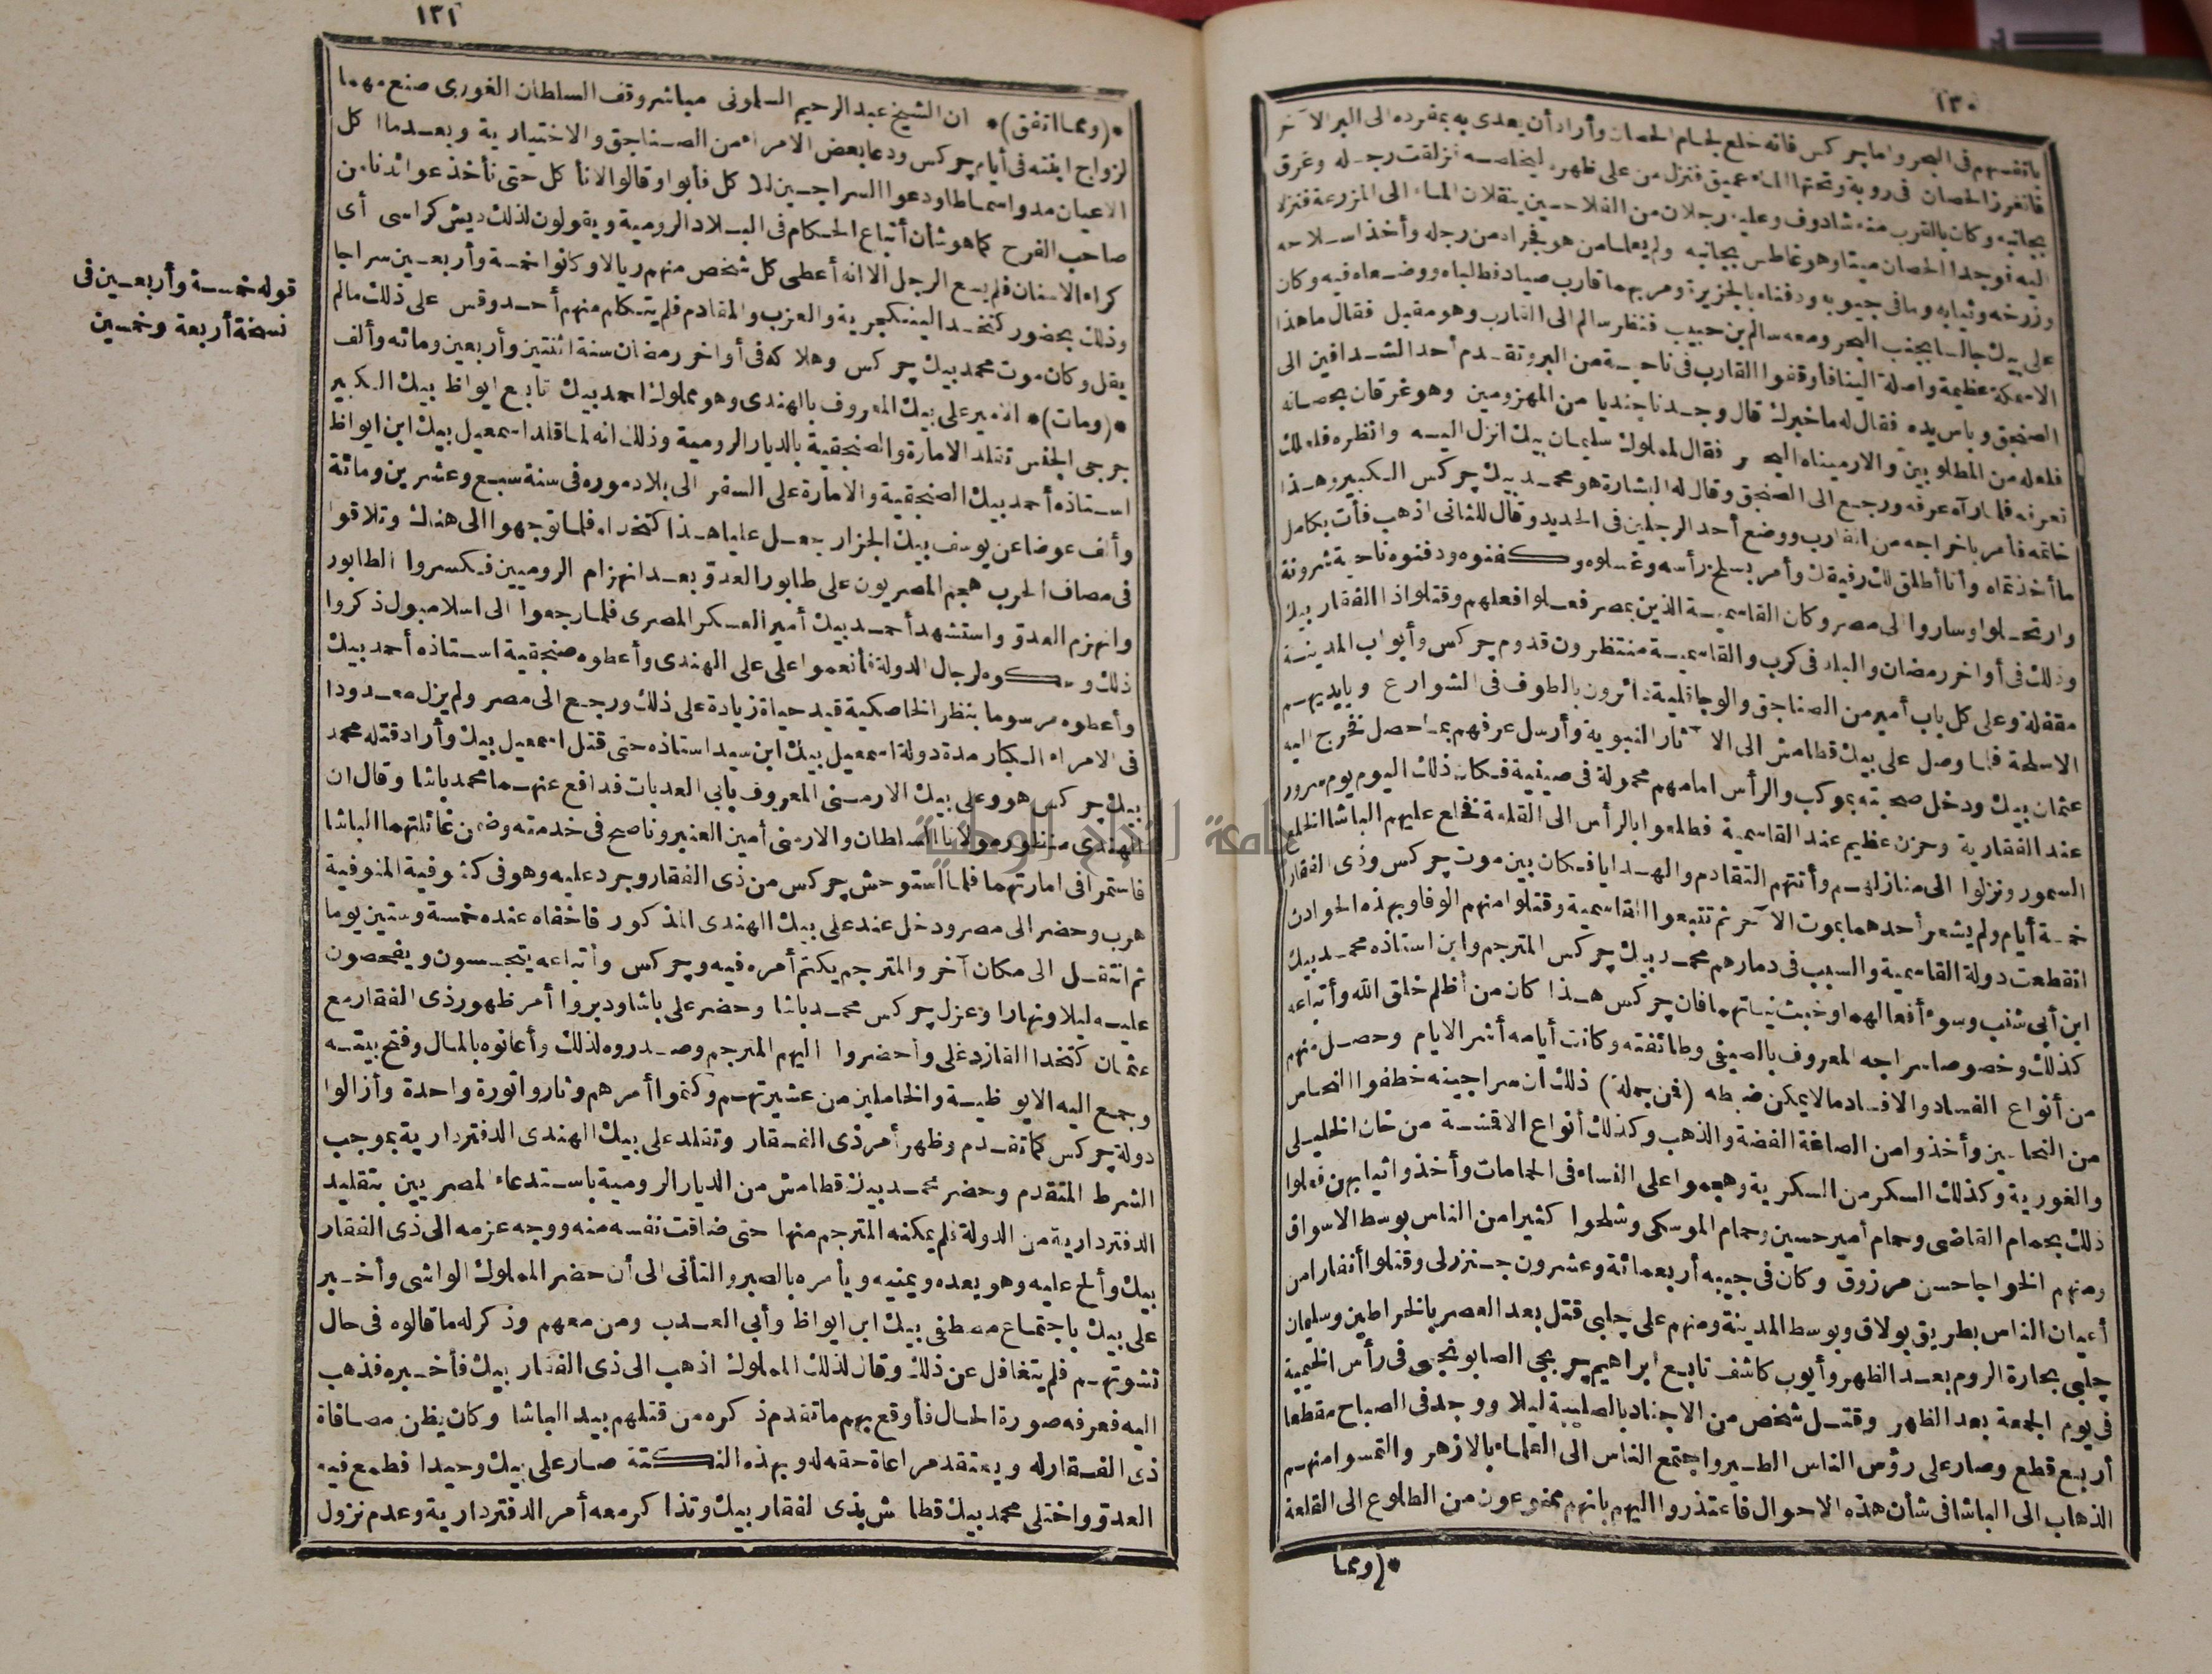 ١٣٠
بأنفسهم فى البحر واما چركس فانه خلع لجام الحصان وأراد أن يعدى به بمفرده الى البر الآخر
فانغرز الحصان فى روبة وتحتها الماء عميق فنزل من على ظهره ليخلصه فزلقت رجله وغرق
بجانبه وكان بالقرب منه شادوف وعليه رجلان من الفلاحين ينقلان الماء الى المزرعة فنزلا
اليه فوجدا الحصان ميتا وهو غاطس بجانبه ولم يعلما من هو فجراه من رجله وأخذا سلاحه
وزرخه وثيابه وما فى جيوبه ودفناه بالجزيرة ومر بهما قارب صياد فطلباه ووضعاه فيه وكان
على بيك جالسا بجنب البحر ومعه سالم بن حبيب فنظر سالم الى القارب وهو مقبل فقال ما هذا
الاسمكة عظيمة واصلة الينا فأوقفوا القارب فى ناحية من البر وتقدم أحد الشدافين الى
الصنجق وباس يده فقال له ما خبرك قال وجدنا جنديا من المهزومين وهو غرقان بحصانه
فلعله من المطلوبين والا رميناه البحر فقال لمملوك سليمان بيك انزل اليه وانظره فلعلك
تعرفه فلما رآه عرفه ورجع الى الصنجق وقال له البشارة هو محمد بيك چركس الكبير وهذا
خاتمه فأمر باخراجه من القارب ووضع أحد الرجلين فى الحديد وقال للثانى اذهب فأت بكامل
ما أخذتماه وأنا أطلق لك رفيقك وأمر بسلخ رأسه وغسلوه وكفنوه ودفنوه ناحية شرونة
وارتحلوا وساروا الى مصر وكان القاسمية الذين بمصر فعلوا فعلهم وقتلوا ذا الفقار بيك
وذلك فى أواخر رمضان والبلد فى كرب والقاسمية منتظرون قدوم چركس وأبواب المدينة
مقفلة وعلى كل باب أمير من الصناجق والوجاقلية دائرون بالطوف فى الشوارع وبأيديهم
الاسلحة فلما وصل على بيك قطامش الى الآثار النبوية وأرسل عرفهم بما حصل فخرج اليه
عثمان بيك ودخل صحبته بموكب والرأس امامهم محمولة فى صينية فكان ذلك اليوم يوم سرور
عند الفقارية وحزن عظيم عند القاسمية فطلعوا بالرأس الى القلعة فخلع عليهم الباشا الخلع
السمور ونزلوا الى منازلهم وأتتهم التقادم والهدايا فكان بين موت چركس وذى الفقار
خمسة أيام ولم يشعر أحدهما بموت الآخر ثم تتبعوا القاسمية وقتلوا منهم الوفا وبهذه الحوادث
انقطعت دولة القاسمية والسبب فى دمارهم محمد بيك چركس المترجم وابن استاذه محمد بيك
ابن أبى شنب وسوء أفعالهما وخبث نياتهما فان چركس هذا كان من أظلم خلق الله وأتباعه
كذلك وخصوصا سراجه المعروف بالصيفى وطائفته وكانت أيامه أشر الايام وحصل منهم
من أنواع الفساد والافساد ما لا يمكن ضبطه (فمن جملة) ذلك ان سراجينه خطفوا النحاس
من النحاسين وأخذوا من الصاغة الفضة والذهب وكذلك أنواع الاقشة من خان الخليلى
والغورية وكذلك السكر من السكرية وهجموا على النساء فى الحمامات وأخذوا ثيابهن فعلوا
ذلك بحمام القاضى وحمام أمير حسين وحمام الموسكى وشلحوا كثيرا من الناس بوسط الاسواق
ومنهم الخواجا حسن مرزوق وكان فى جيبه أربعمائة وعشرون جنزرلى وقتلوا أنفارا من
أعيان الناس بطريق بولاق وبوسط المدينة ومنهم على چلبى قتل بعد العصر بالخراطين وسليمان
چلبى بحارة الروم بعد الظهر وأيوب كاشف تابع ابراهيم چربجى الصابونجى فى رأس الخيمية
فى يوم الجمعة بعد الظهر وقتل شخص من الاجناد بالصليبة ليلا ووجد فى الصباح مقطعا
أربع قطع وصار على رؤس الناس الطير واجتمع الناس الى العلماء بالازهر والتمسوا منهم
الذهاب الى الباشا فى شأن هذه الاحوال فاعتذروا اليهم بانهم ممنوعون من الطلوع الى القلعة
*(ومما
١٣١
*(ومما اتفق)* ان الشيخ عبد الرحيم السلمونى مباشر وقف السلطان الغورى صنع مهما
لزواج ابنته فى أيام چركس ودعا بعض الامراء من الصناجق والاختيارية وبعد ما اكل
الاعيان مدوا سماطا ودعوا السراجين للاكل فأبوا وقالوا لا نأكل حتى نأخذ عوائدنا من
صاحب الفرح كما هو شأن أتباع الحكام فى البلاد الرومية ويقولون لذلك ديش كراسى أى
كراء الاسنان فلم يسع الرجل الا انه أعطى كل شخص منهم ريالا وكانوا خمسة وأربعين سراجا
وذلك بحضور كتخدا الينكجرية والعزب والمقادم فلم يتكلم منهم أحد وقس على ذلك مالم
يقل وكان موت محمد بيك چركس وهلاكه فى أواخر رمضان سنة اثنتين وأربعين ومائه وألف
*(ومات)* الامير على بيك المعروف بالهندى وهو مملوك احمد بيك تابع ايواظ بيك الكبير
جرجى الجنس تقلد الامارة والصنجقية بالديار الرومية وذلك انه لما قلد اسمعيل بيك ابن ايواظ
استاذه أحمد بيك الصنجقية والامارة على السفر الى بلاد موره فى سنة سبع وعشرين ومائة
وألف عوضا عن يوسف بيك الجزار جعل عليا هذا كتخداه فلما توجهوا الى هناك وتلاقوا
فى مصاف الحرب هجم المصريون على طابور العدوّ بعد انهزام الروميين فكسروا الطابور
وانهزم العدوّ واستشهد أحمد بيك أمير العسكر المصرى فلما رجعوا الى اسلامبول ذكروا
ذلك وحكوه لرجال الدولة فأنعموا على على الهندى وأعطوه صنجقية استاذه أحمد بيك
وأعطوه مرسوما بنظر الخاصكية قيد حياة زيادة على ذلك ورجع الى مصر ولم يزل معدودا
فى الامراء الكبار مدة دولة اسمعيل بيك ابن سيد استاذه حتى قتل اسمعيل بيك وأراد قتله محمد
بيك چركس هو وعلى بيك الارمنى المعروف بابى العدبات فدافع عنهما محمد باشا وقال ان
الهندى منظور مولانا السلطان والارمنى أمين العنبر وناصح فى خدمته وضمن غائلتهما الباشا
فاستمرا فى امارتهما فلما استوحش چركس من ذى الفقار وجرد عليه وهو فى كشوفية المنوفية
هرب وحضر الى مصر ودخل عند على بيك الهندى المذكور فاخفاه عنده خمسة وستين يوما
ثم انتقل الى مكان آخر والمترجم يكتم أمره فيه وچركس وأتباعه يتجسسون ويفحصون
عليه ليلا ونهارا وعزل چركس محمد باشا وحضر على باشا ودبروا أمر ظهور ذى الفقار مع
عثمان كتخدا القازدغلى وأحضروا اليهم المترجم وصدروه لذلك وأعانوه بالمال وفتح بيته
وجمع اليه الايوظية والخاملين من عشيرتهم وكتموا أمرهم وثاروا ثورة واحدة وأزالوا
دولة چركس كما تقدم وظهر أمر ذى الفقار وتقلد على بيك الهندى الدفتردارية بموجب
الشرط المتقدم وحضر محمد بيك قطامش من الديار الرومية باستدعاء المصريين بتقليد
الدفتردارية من الدولة فلم يمكنه المترجم منها حتى ضاقت نفسه منه ووجه عزمه الى ذى الفقار
بيك وألح عليه وهو يعده ويمنيه ويأمره بالصبر والتأنى الى أن حضر المملوك الواشى وأخبر
على بيك باجتماع مصطفى بيك ابن ايواظ وأبى العدب ومن معهم وذكر له ما قالوه فى حال
نشوتهم فلم يتغافل عن ذلك وقال لذلك المملوك اذهب الى ذى الفقار بيك فأخبره فذهب
اليه فعرفه صورة الحال فأوقع بهم ما تقدم ذكره من قتلهم بيد الباشا وكان يظن مصافاة
ذى الفقار له ويعتقد مراعاة حقه له وبهذه النكتة صار على بيك وحيدا فطمع فيه
العدوّ واختلى محمد بيك قطامش بذى الفقار بيك وتذاكر معه أمر الدفتردارية وعدم نزول
قوله خمسة وأربعين فى
نسخة أربعة وخمسين
جامعة النجاح الوطنية